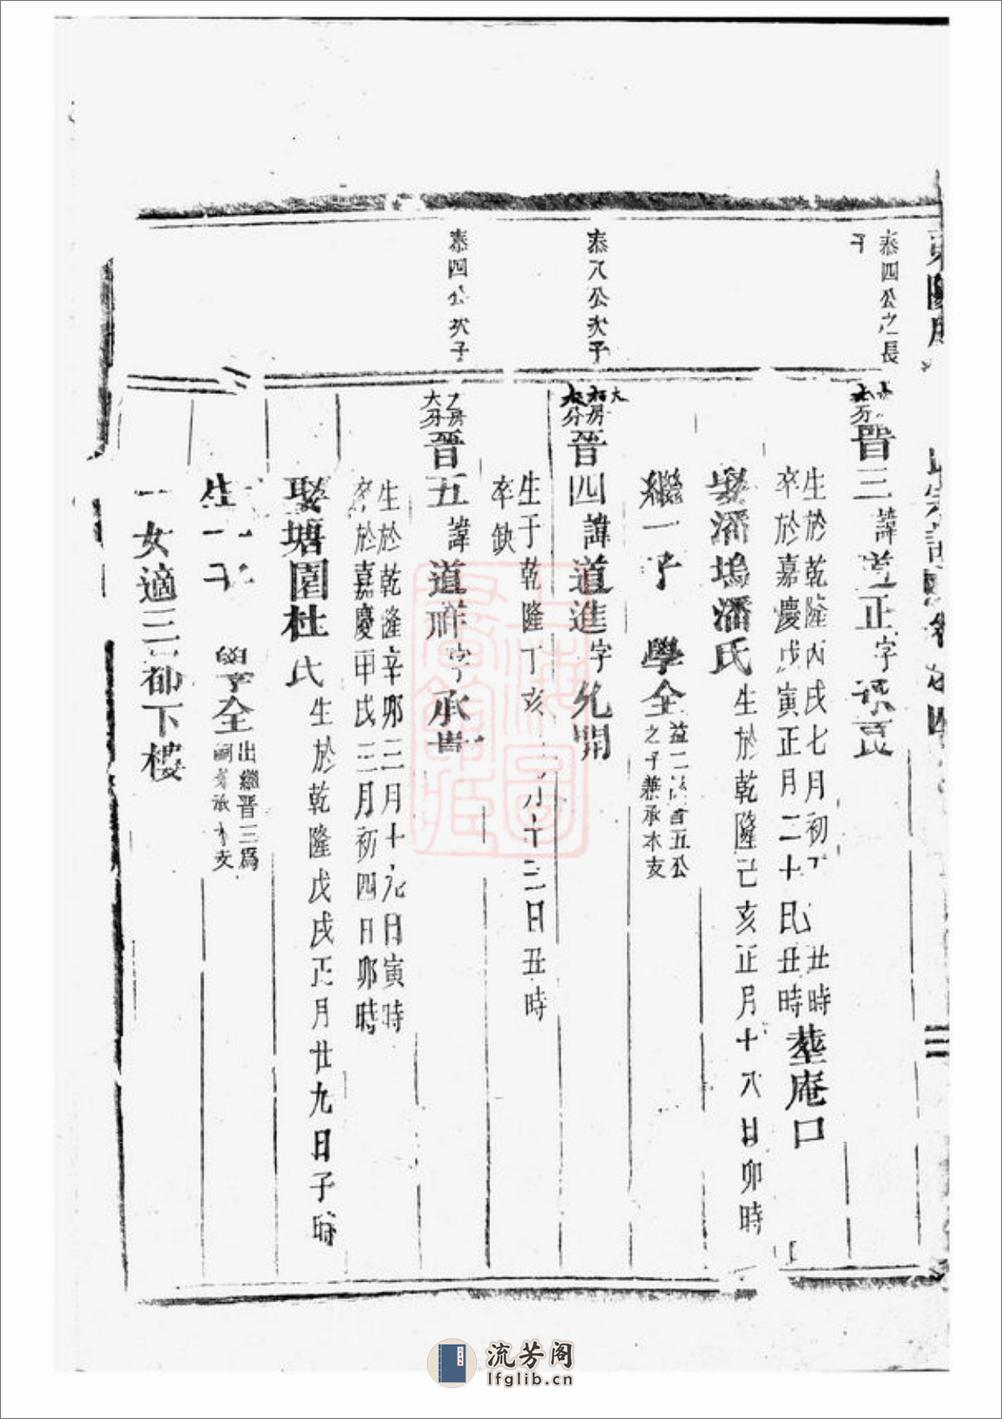 泰四公之長
子
晋三諱道正字
生於乾隆丙戌七月初 丑時
卒於嘉慶戊寅正月二十日丑時
塟庵口
娶潘塢潘氏
生於乾隆己亥正月十八日卯時
繼一子 學全
之子兼承本支
泰八公次子
晋四諱道進字允開
生于乾隆丁亥 月十三日丑時
卒缺
泰四公次子
晋五諱道祥字承
生於乾隆辛卯三月十九日寅時
卒於嘉慶甲戌三月初四日卯時
娶塘園杜氏
生於乾隆戊戌正月廿九日子時
生一子 學全
出繼晋三爲
嗣兼承本支
一女適三都下樓
流芳阁
lfglib.cn